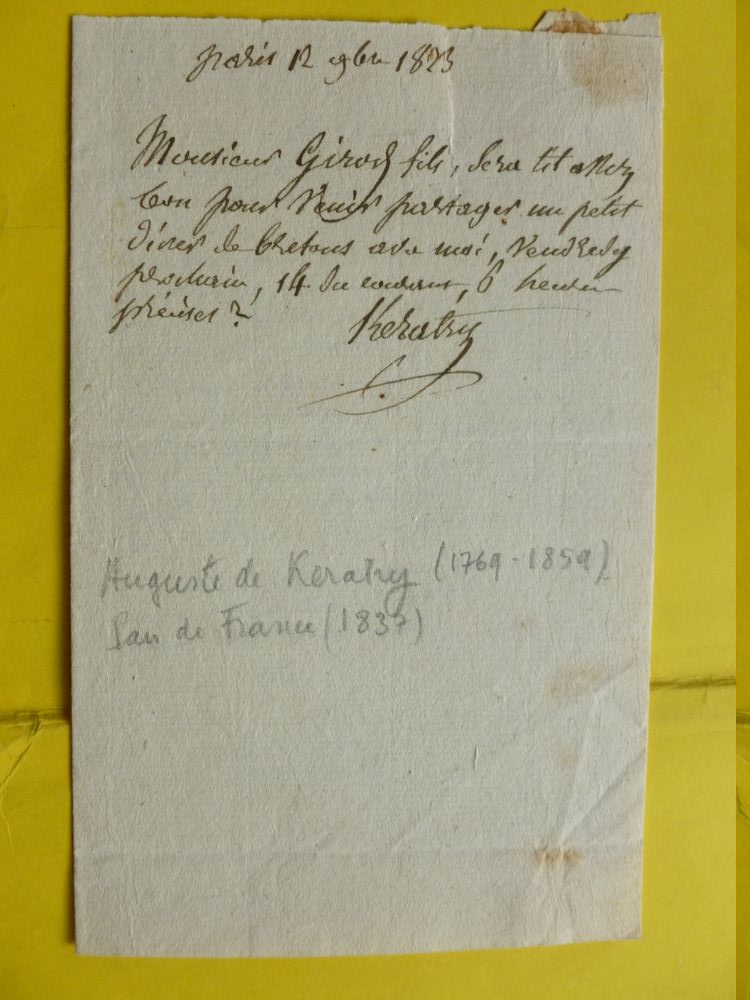 paris 12 9bre 1823
Monsieur Girod fils, sera til assez
bon pour venir partager un petit
diner de bretons avec moi, vendredy
prochain, 14 du courant, 6 heures
précises ?
Keratry
Auguste de Keratry (1769-1859)
Pair de France (1837)